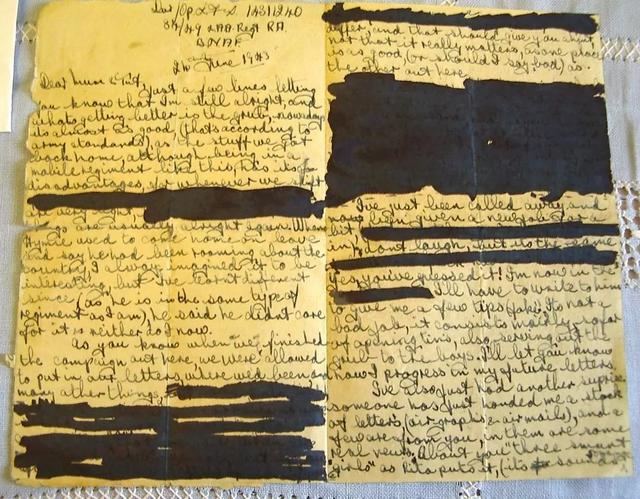 84/49 LAA Regt RA
BNAF
June 1943
Dear Mum &
Just a few lines letting
you know that I'm still alright, and
what's getting better is the grub, nowadays
its almost as good (that's according to
army standards), as the stuff we got
back home, although being in a
mobile regiment like this, has its
disadvantages, whenever we shift
are very
things are usually alright again. When
Hymie used to come home on leave
and say he had been roaming about the
country, I always imagined it to be
interesting, but I've learnt different
since (as he is in the same type of
regiment as I am), he said he didn't care
for it so neither do I now.
As you know when we finished
the campaign out here, we were allowed
to put in our letters where we'd been and
many other things,
differ, and that should give you
not that it really matters, as one place
is as good (or should I say bad) as
the other out here.
I've just been called away, and
have been given a new job for a
bit
in, don't laugh, but its the same
Yes, you've guessed it! I'm now in the
I'll have to write to him
to give me a few tips (joke). Its not a
bad job, it consists mainly, so far
of opening tins, also serving out the
grub to the boys. I'll let you know
how I progress in my future letters.
I've also just had another suprise
someone has just handed me a stack
of letters (airgraphs & airmails), and a
few are from you, in them are some
real news. About you "three smart
girls" as Rita puts it, (its